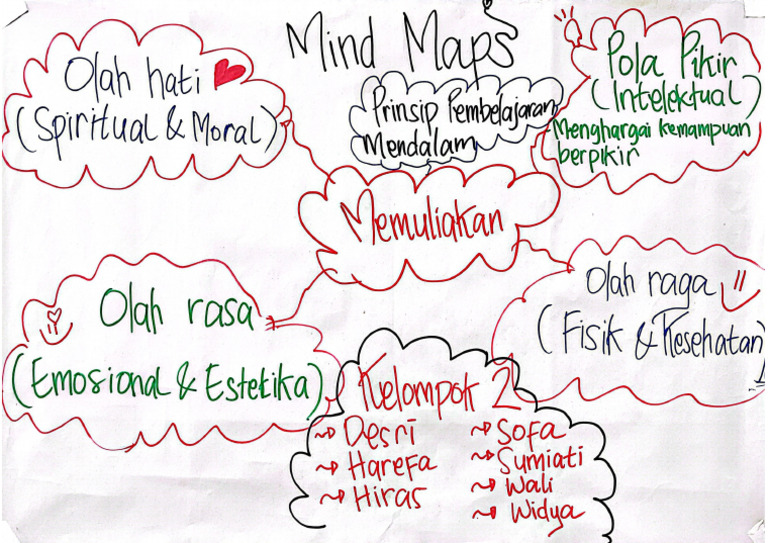 Mind Maps
Prinsip Pembelajaran
Mendalam
Olah hati
(Spiritual & Moral)
Pola Pikir
(Intelektual)
Menghargai kemampuan
berpikir
Memuliakan
Olah rasa
(Emosional & Estetika)
Olah raga
(Fisik & Kesehatan)
Kelompok 2
Desri
Harefa
Hiras
Sofa
Sumiati
Wali
Widya